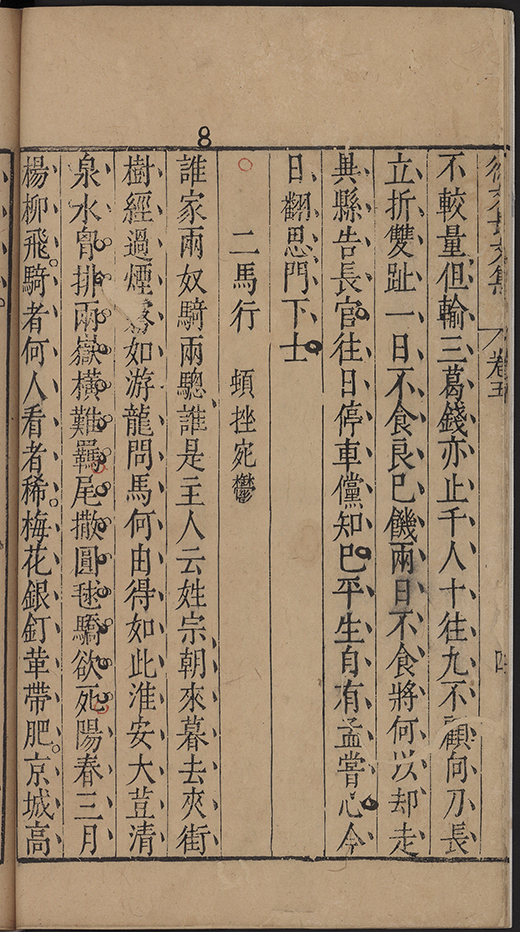 徐文長文集 卷五 四
不較量但輸三葛錢亦止千人十往九不顧向刀長
立折雙趾一日不食良巳饑兩日不食將何以却走
具縣告長官往日停車儻知巴平生自有孟嘗心今
日翻思門下士
二馬行 頓挫宛欝
誰家兩奴騎兩驄誰是主人云姓宗朝來暮去夾街
樹經過煙霧如游龍問馬何由得如此淮安大荳清
泉水胷排兩嶽橫難羈尾撒圓毬驕欲死陽春三月
楊柳飛騎者何人看者稀梅花銀釘革帶肥京城高
8